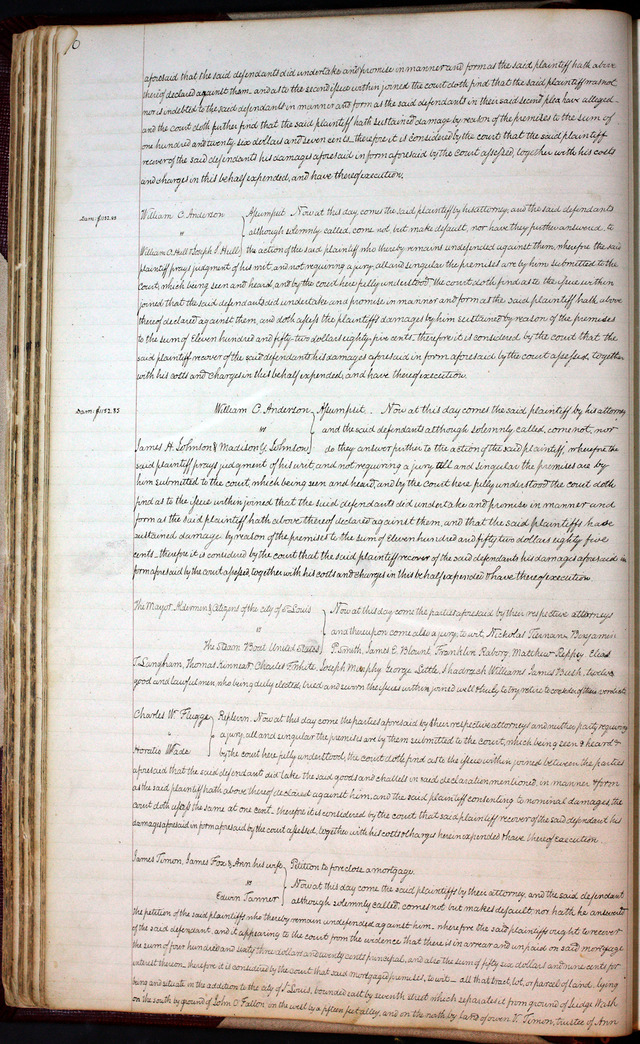 70
aforesaid that the said defendants did undertake and promise in manner and form as the said plaintiff hath above
thereof declared against them and as to the second issue within joined the court doth find that the said plaintiff was not
nor is indebted to the said defendants in manner and form as the said defendants in their said second plea have alleged
and the court doth further find that the said plaintiff hath sustained damage by reason of the premises to the sum of
one hundred and twenty six dollars and seven cents therefore it is considered by the court that the said plaintiff
recover of the said defendants his damages aforesaid in form aforesaid by the court assessed, together with his costs
and charges in this behalf expended, and have thereof execution.
Dam: $1152.85
William C. Anderson } Assumpsit Now at this day, comes the said plaintiff by his attorney, and the said defendants
" although solemnly called, come not but make default, nor have they further answered, to
William O. Hull & Joseph S. Hull } the action of the said plaintiff who thereby remains undefended against them, wherefore the said
plaintiff prays judgment of his writ, and not requiring a jury, all and singular the premises are by him submitted to the
court, which being seen and heard, and by the court here fully understood, the court doth find as to the issue within
joined that the said defendants did undertake and promise in manner and form as the said plaintiff hath above
thereof declared against them, and doth assess the plaintiffs damages by him sustained by reason of the premises
to the sum of Eleven hundred and fifty two dollars eighty five cents. therefore it is considered by the court that the
said plaintiff recover of the said defendants his damages aforesaid in form aforesaid by the court assessed, together
with his costs and charges in this behalf expended, and have thereof execution.
Dam: $1152.85
William C. Anderson } Assumpsit. Now at this day comes the said plaintiff by his attorney
" and the said defendants although solemnly called, come not, nor
James H. Johnson & Madison Y. Johnson } do they answer further to the action of the said plaintiff, wherefore the
said plaintiff prays judgment of his writ, and not requiring a jury all and singular the premises are by
him submitted to the court, which being seen and heard, and by the court here fully understood the court doth
find as to the issue within joined that the said defendants did undertake and promise in manner and
form as the said plaintiff hath above thereof declared against them, and that the said plaintiffs has
sustained damage by reason of the premises to the sum of Eleven hundred and fifty two dollars eighty five
cents therefore it is considered by the court that the said plaintiff recover of the said defendants his damages aforesaid in
form aforesaid by the court assessed, together with his costs and charges in this behalf expended & have thereof execution
The Mayor Aldermen & Citizens of the city of St Louis } Now at this day come the parties aforesaid by their respective attorneys
" and thereupon come also a jury, to wit, Nicholas Tiernan, Benjamin
The Steam Boat United States } P. Smith, James E. Blount, Franklin Raborg, Matthew Reppey, Elias
T. Langham, Thomas Kennett Charles White, Joseph Murphy George Little, Shadrach Williams James Bush, twelve
good and lawful men, who being duly elected, tried and sworn the issues within joined well & truly to try retire to consider of their verdict
Charles W. Flugge } Replevin. Now at this day come the parties aforesaid by their respective attorneys and neither party requiring
" a jury, all and singular the premises are by them submitted to the court, which being seen & heard &
Horatio Wade } by the court here fully understood, the court doth find as to the issue within joined between the parties
aforesaid that the said defendant did take the said goods and chattels in said declaration mentioned, in manner & form
as the said plaintiff hath above thereof declared against him, and the said plaintiff consenting to nominal damages, the
court doth assess the same at one cent. therefore it is considered by the court that said plaintiff recover of the said defendant his
damages aforesaid in form aforesaid by the court assessed, together with his costs & charges herein expended & have thereof execution.
James Timon, James Fox & Ann his wife } Petition to foreclose a mortgage.
" Now at this day come the said plaintiffs by their attorney, and the said defendant
Edwin Tanner } although solemnly called, comes not but makes default nor hath he answered
the petition of the said plaintiffs who thereby remain undefended against him. wherefore the said plaintiffs ought to recover
of the said defendant, and it appearing to the court from the evidence that there is in arrear and unpaid on said mortgage
the sum of four hundred and sixty three dollars and twenty cents principal, and also the sum of fifty six dollars and nine cents for
interest thereon therefore it is considered by the court that said mortgaged premises, to wit all that tract, lot, or parcel of land, lying
being and situate in the addition to the city of St Louis, bounded east by seventh street which separates it from ground of Judge Wash
on the south by ground of John O'Fallon on the west by a fifteen feet alley, and on the north by land of Owen W. Timon, trustee of Ann